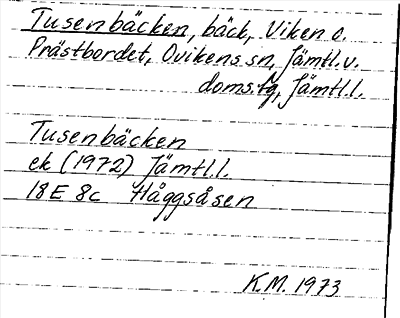 Tusenbäcken, bäck, Viken o.
Prästbordet, Ovikens sn, Jämtl.v.
doms.tg, Jämtl.l.
Tusenbäcken
ek (1972) Jämtl.l.
18E 8c Håggsåsen
K.M. 1973